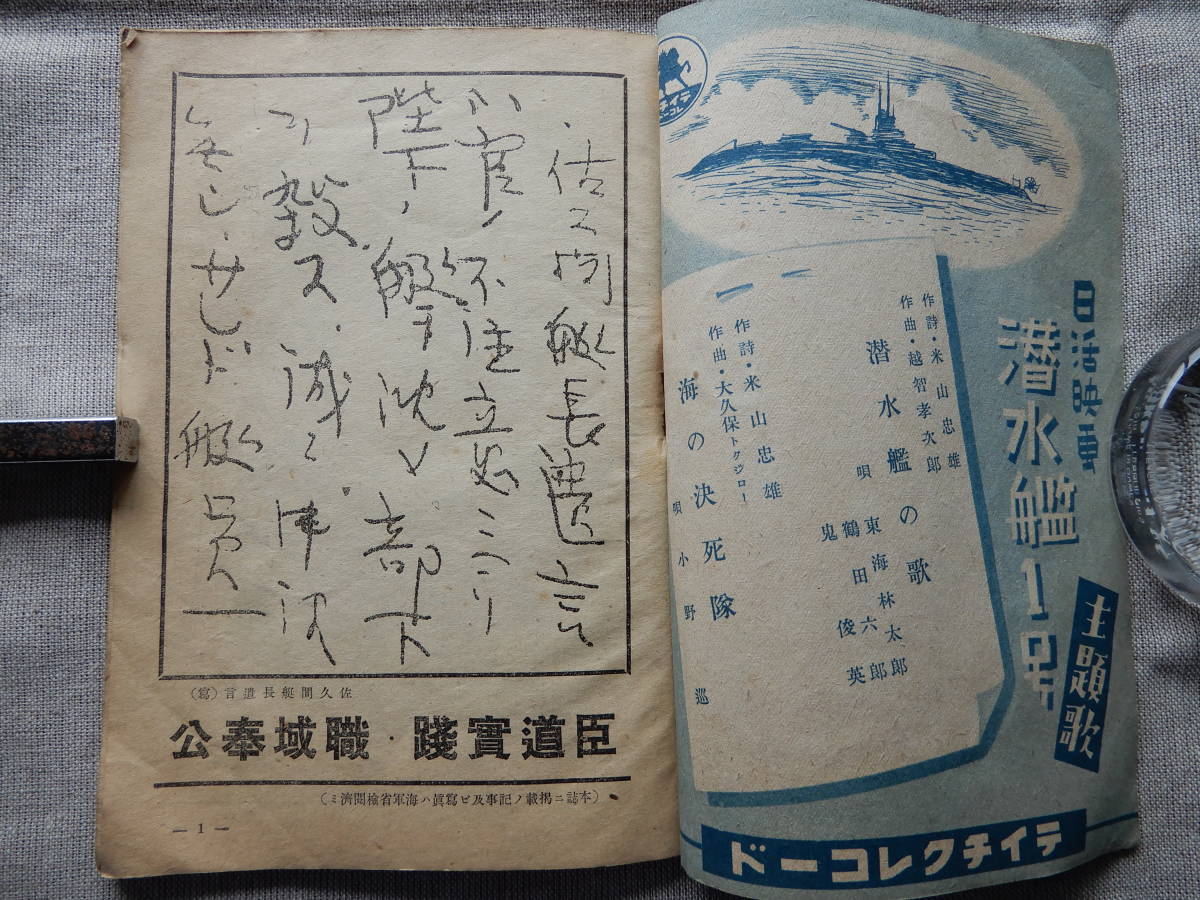 日活映画
潜水艦1号
主題歌
作詩・米山忠雄
作曲・越智孝次郎
潜水艦の歌
唄 東海林太郎
鶴田六郎
鬼俊英
作詩・米山忠雄
作曲・大久保トクジロー
海の決死隊
唄 小野巡
テイチクレコード
佐久間艇長遺言
小官ノ不注意ニヨリ
陛下ノ艇ヲ沈メ部下
ヲ殺ス、誠ニ申訳
無シ、サレド艇員一
佐久間艇長遺言(寫)
臣道實踐・職域奉公
(本誌ニ掲載ノ記事及ビ寫眞ハ海軍省檢閲濟ミ)
— 1 —